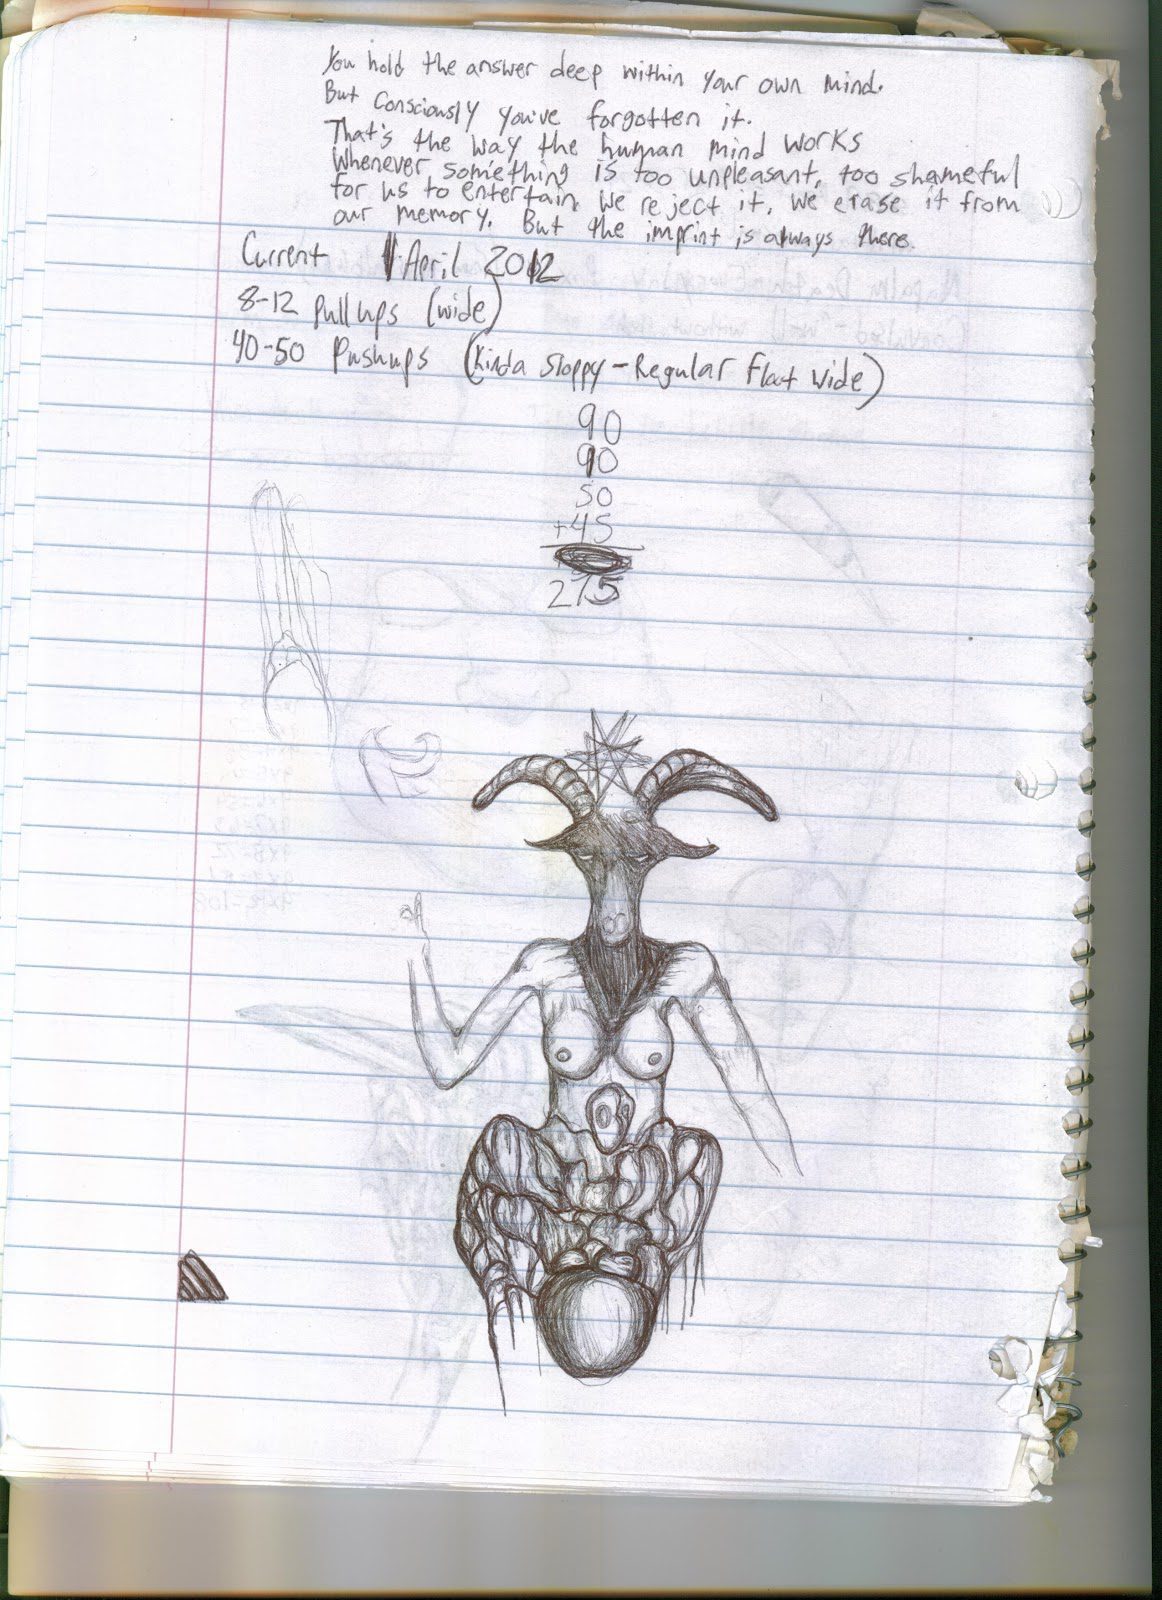 You hold the answer deep within your own mind.
But consciously you've forgotten it.
That's the way the human mind works
Whenever something is too unpleasant, too shameful
for us to entertain, we reject it, we erase it from
our memory. But the imprint is always there.
Current 1 April 2012
8-12 Pull ups (wide)
40-50 Pushups (Kinda sloppy - Regular float wide)
90
90
50
+45
275